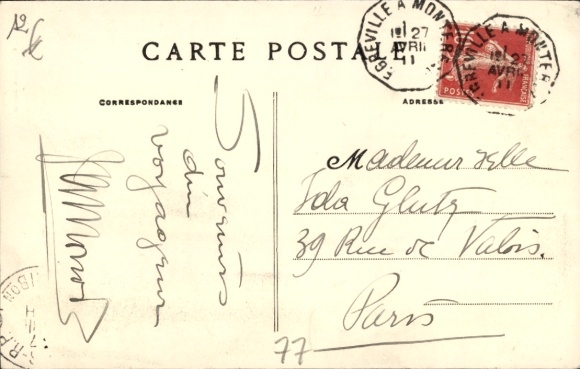 CARTE POSTALE
CORRESPONDANCE
ADRESSE
EGREVILLE A MONTER
27
AVRIL
11
EGREVILLE A MONTER
AVRIL
11
POSTES
Souvenirs
d'un
voyageur
Mademoiselle
Ida Glutz
39 Rue de Valois.
Paris
77